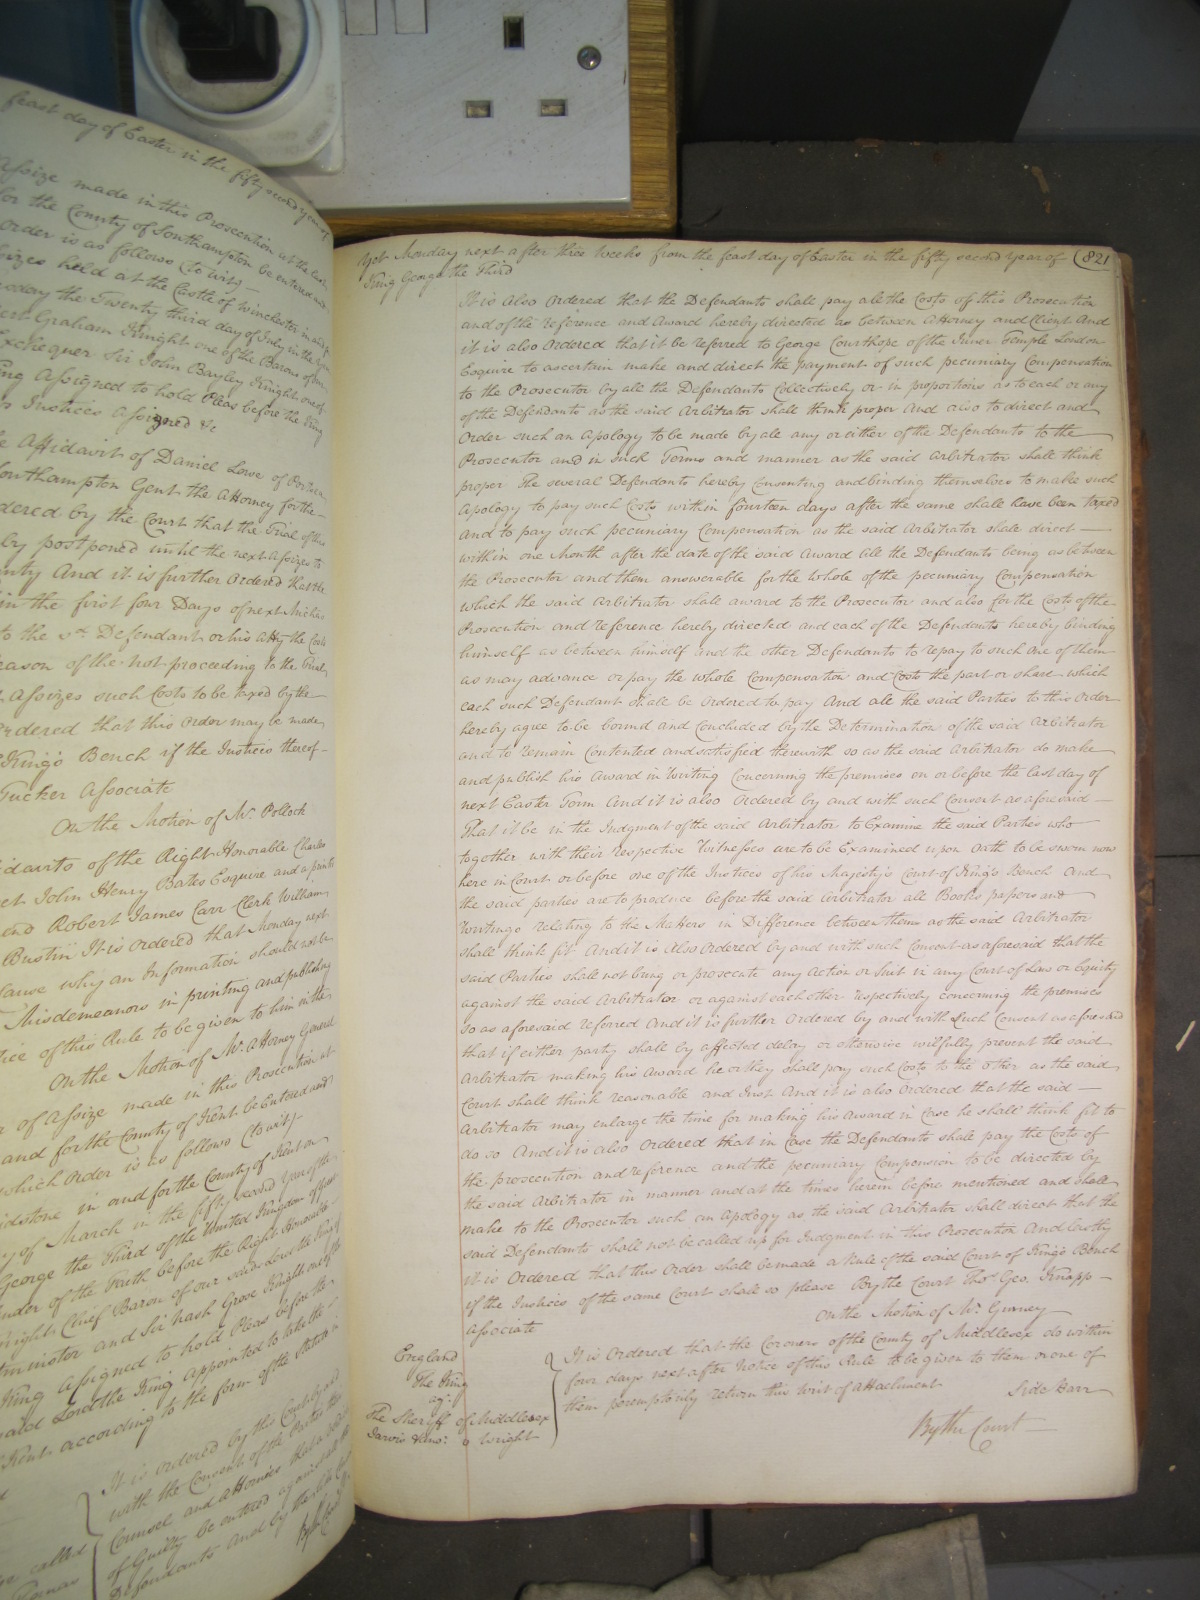 feast day of Easter in the fifty second year of
Assize made in this Prosecution at the last
for the County of Southampton be entered
Order is as follows (to wit)
Assizes held at the Castle of Winchester in and for
the Twenty third day of July in the
Graham Knight one of the Barons of
Exchequer Sir John Bayley Knight one of
Assigned to hold Pleas before the King
Justices Assigned &c
Affidavit of Daniel Lowe of Portsea
Southampton Gent the Attorney for the
Ordered by the Court that the Trial of this
postponed until the next Assizes to
And it is further Ordered that the
in the first four Days of next Michas
to the sd. Defendant or his atty the Costs
reason of the not proceeding to the Trial
Assizes such Costs to be taxed by the
Ordered that this Order may be made
King's Bench if the Justices thereof
Tucker Associate
On the Motion of Mr. Pollock
Affidavits of the Right Honorable Charles
John Henry Bates Esquire and a printed
and Robert James Carr Clerk William
Bustin It is ordered that Monday next
Cause why an Information should not be
Misdemeanors in printing and publishing
of this Rule to be given to him in the
On the Motion of Mr. Attorney General
of Assize made in this Prosecution at
and for the County of Kent be Entered and
which Order is as follows (to wit)
in and for the County of Kent on
of March in the fifty second year of the
George the Third of the United Kingdom of
of the Faith before the Right Honorable
Knight Chief Baron of our said Lord the King
and Sir Nash Grose Knight one of the
King Assigned to hold Pleas before the
said Lord the King Appointed to take the
Kent according to the form of the Statute
It is ordered by this Court
with the Consent of the Parties their
Counsel and Attornies that a
of Guilty be entered against all the
Defendants and by the like
By the Court
Yet Monday next after three Weeks from the feast day of Easter in the fifty second year of 821
King George the Third
It is also Ordered that the Defendants shall pay all the Costs of this Prosecution
and of the reference and Award hereby directed as between Attorney and Client And
it is also Ordered that it be referred to George Courthope of the Inner Temple London
Esquire to ascertain make and direct the payment of such pecuniary Compensation
to the Prosecutor by all the Defendants Collectively or in proportions as to each or any
of the Defendants as the said Arbitrator shall think proper And also to direct and
Order such an Apology to be made by all any or either of the Defendants to the
Prosecutor and in such Terms and manner as the said Arbitrator shall think
proper The several Defendants hereby Consenting and binding themselves to make such
Apology to pay such Costs within fourteen days after the same shall have been taxed
and to pay such pecuniary Compensation as the said Arbitrator shall direct
within one Month after the date of the said Award All the Defendants being as between
the Prosecutor and them answerable for the whole of the pecuniary Compensation
which the said Arbitrator shall award to the Prosecutor and also for the Costs of the
Prosecution and reference hereby directed and each of the Defendants hereby binding
himself as between himself and the other Defendants to repay to such one of them
as may advance or pay the whole Compensation and Costs the part or share which
each such Defendant shall be Ordered to pay And all the said Parties to this Order
hereby agree to be bound and Concluded by the Determination of the said Arbitrator
and to remain Contented and satisfied therewith so as the said Arbitrator do make
and publish his Award in Writing Concerning the premises on or before the last day of
next Easter Term And it is also Ordered by and with such Consent as aforesaid
That it be in the Judgment of the said Arbitrator to Examine the said Parties who
together with their respective Witnesses are to be Examined upon Oath to be sworn now
here in Court or before one of the Justices of his Majesty's Court of King's Bench and
the said parties are to produce before the said Arbitrator all Books papers and
Writings relating to the Matters in Difference between them as the said Arbitrator
shall think fit And it is Also Ordered by and with such Consent as aforesaid that the
said Parties shall not bring or prosecute any Action or Suit in any Court of Law or Equity
against the said Arbitrator or against each other respectively concerning the premises
so as aforesaid referred And it is further Ordered by and with such Consent as aforesaid
that if either party shall by affected delay or otherwise wilfully prevent the said
Arbitrator making his Award he or they shall pay such Costs to the other as the said
Court shall think reasonable and Just And it is also Ordered that the said
Arbitrator may enlarge the time for making his award in Case he shall think fit to
do so And it is also Ordered that in Case the Defendants shall pay the Costs of
the prosecution and reference and the pecuniary Compension to be directed by
the said Arbitrator in manner and at the times herein before mentioned and shall
make to the Prosecutor such an Apology as the said Arbitrator shall direct that the
said Defendants shall not be called up for Judgment in this Prosecution And lastly
it is Ordered that this Order shall be made a Rule of the said Court of King's Bench
if the Justices of the same Court shall so please By the Court Thos. Geo. Knapp
Associate
On the Motion of Mr. Gurney
England
The King
agt.
The Sheriff of Middlesex
Jarvis &
Wright
It is Ordered that the Coroners of the County of Middlesex do within
four days next after Notice of this Rule to be given to them or one of
them peremptorily return this Writ of Attachment
Side Barr
By the Court